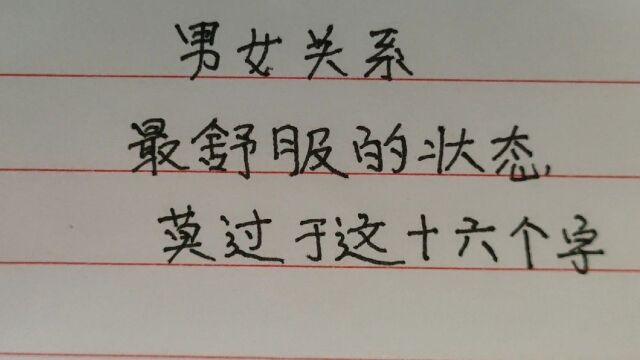 男女关系
最舒服的状态,
莫过于这十六个字